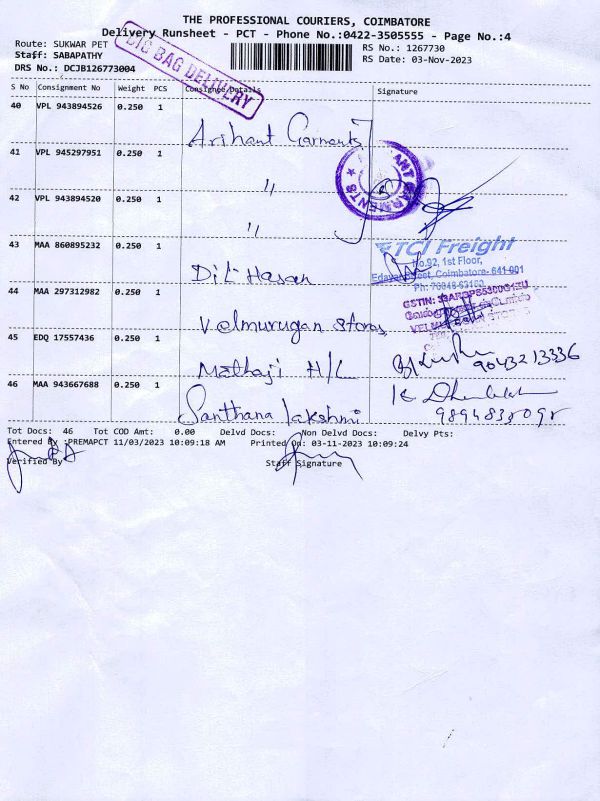 THE PROFESSIONAL COURIERS, COIMBATORE
Delivery Runsheet - PCT - Phone No.:0422-3505555 - Page No.:4
Route: SUKWAR PET
RS No.: 1267730
Staff: SABAPATHY
RS Date: 03-Nov-2023
DRS No.: DCJB126773004
BIG BAG DELIVERY
S No Consignment No Weight PCS Consignee/Details Signature
40 VPL 943894526 0.250 1 Arihant Garments
41 VPL 945297951 0.250 1 "
42 VPL 943894520 0.250 1 "
43 MAA 860895232 0.250 1 Dil Hasan
TCI Freight
No.92, 1st Floor,
Street, Coimbatore- 641 001
44 MAA 297312982 0.250 1 Velmurugan Stores
45 EDQ 17557436 0.250 1 Mathaji H/L
9043213336
46 MAA 943667688 0.250 1 Santhana lakshmi
Tot Docs: 46 Tot COD Amt: 0.00 Delvd Docs: Non Delvd Docs: Delvy Pts:
Entered By :PREMAPCT 11/03/2023 10:09:18 AM Printed On: 03-11-2023 10:09:24
Verified By Staff Signature